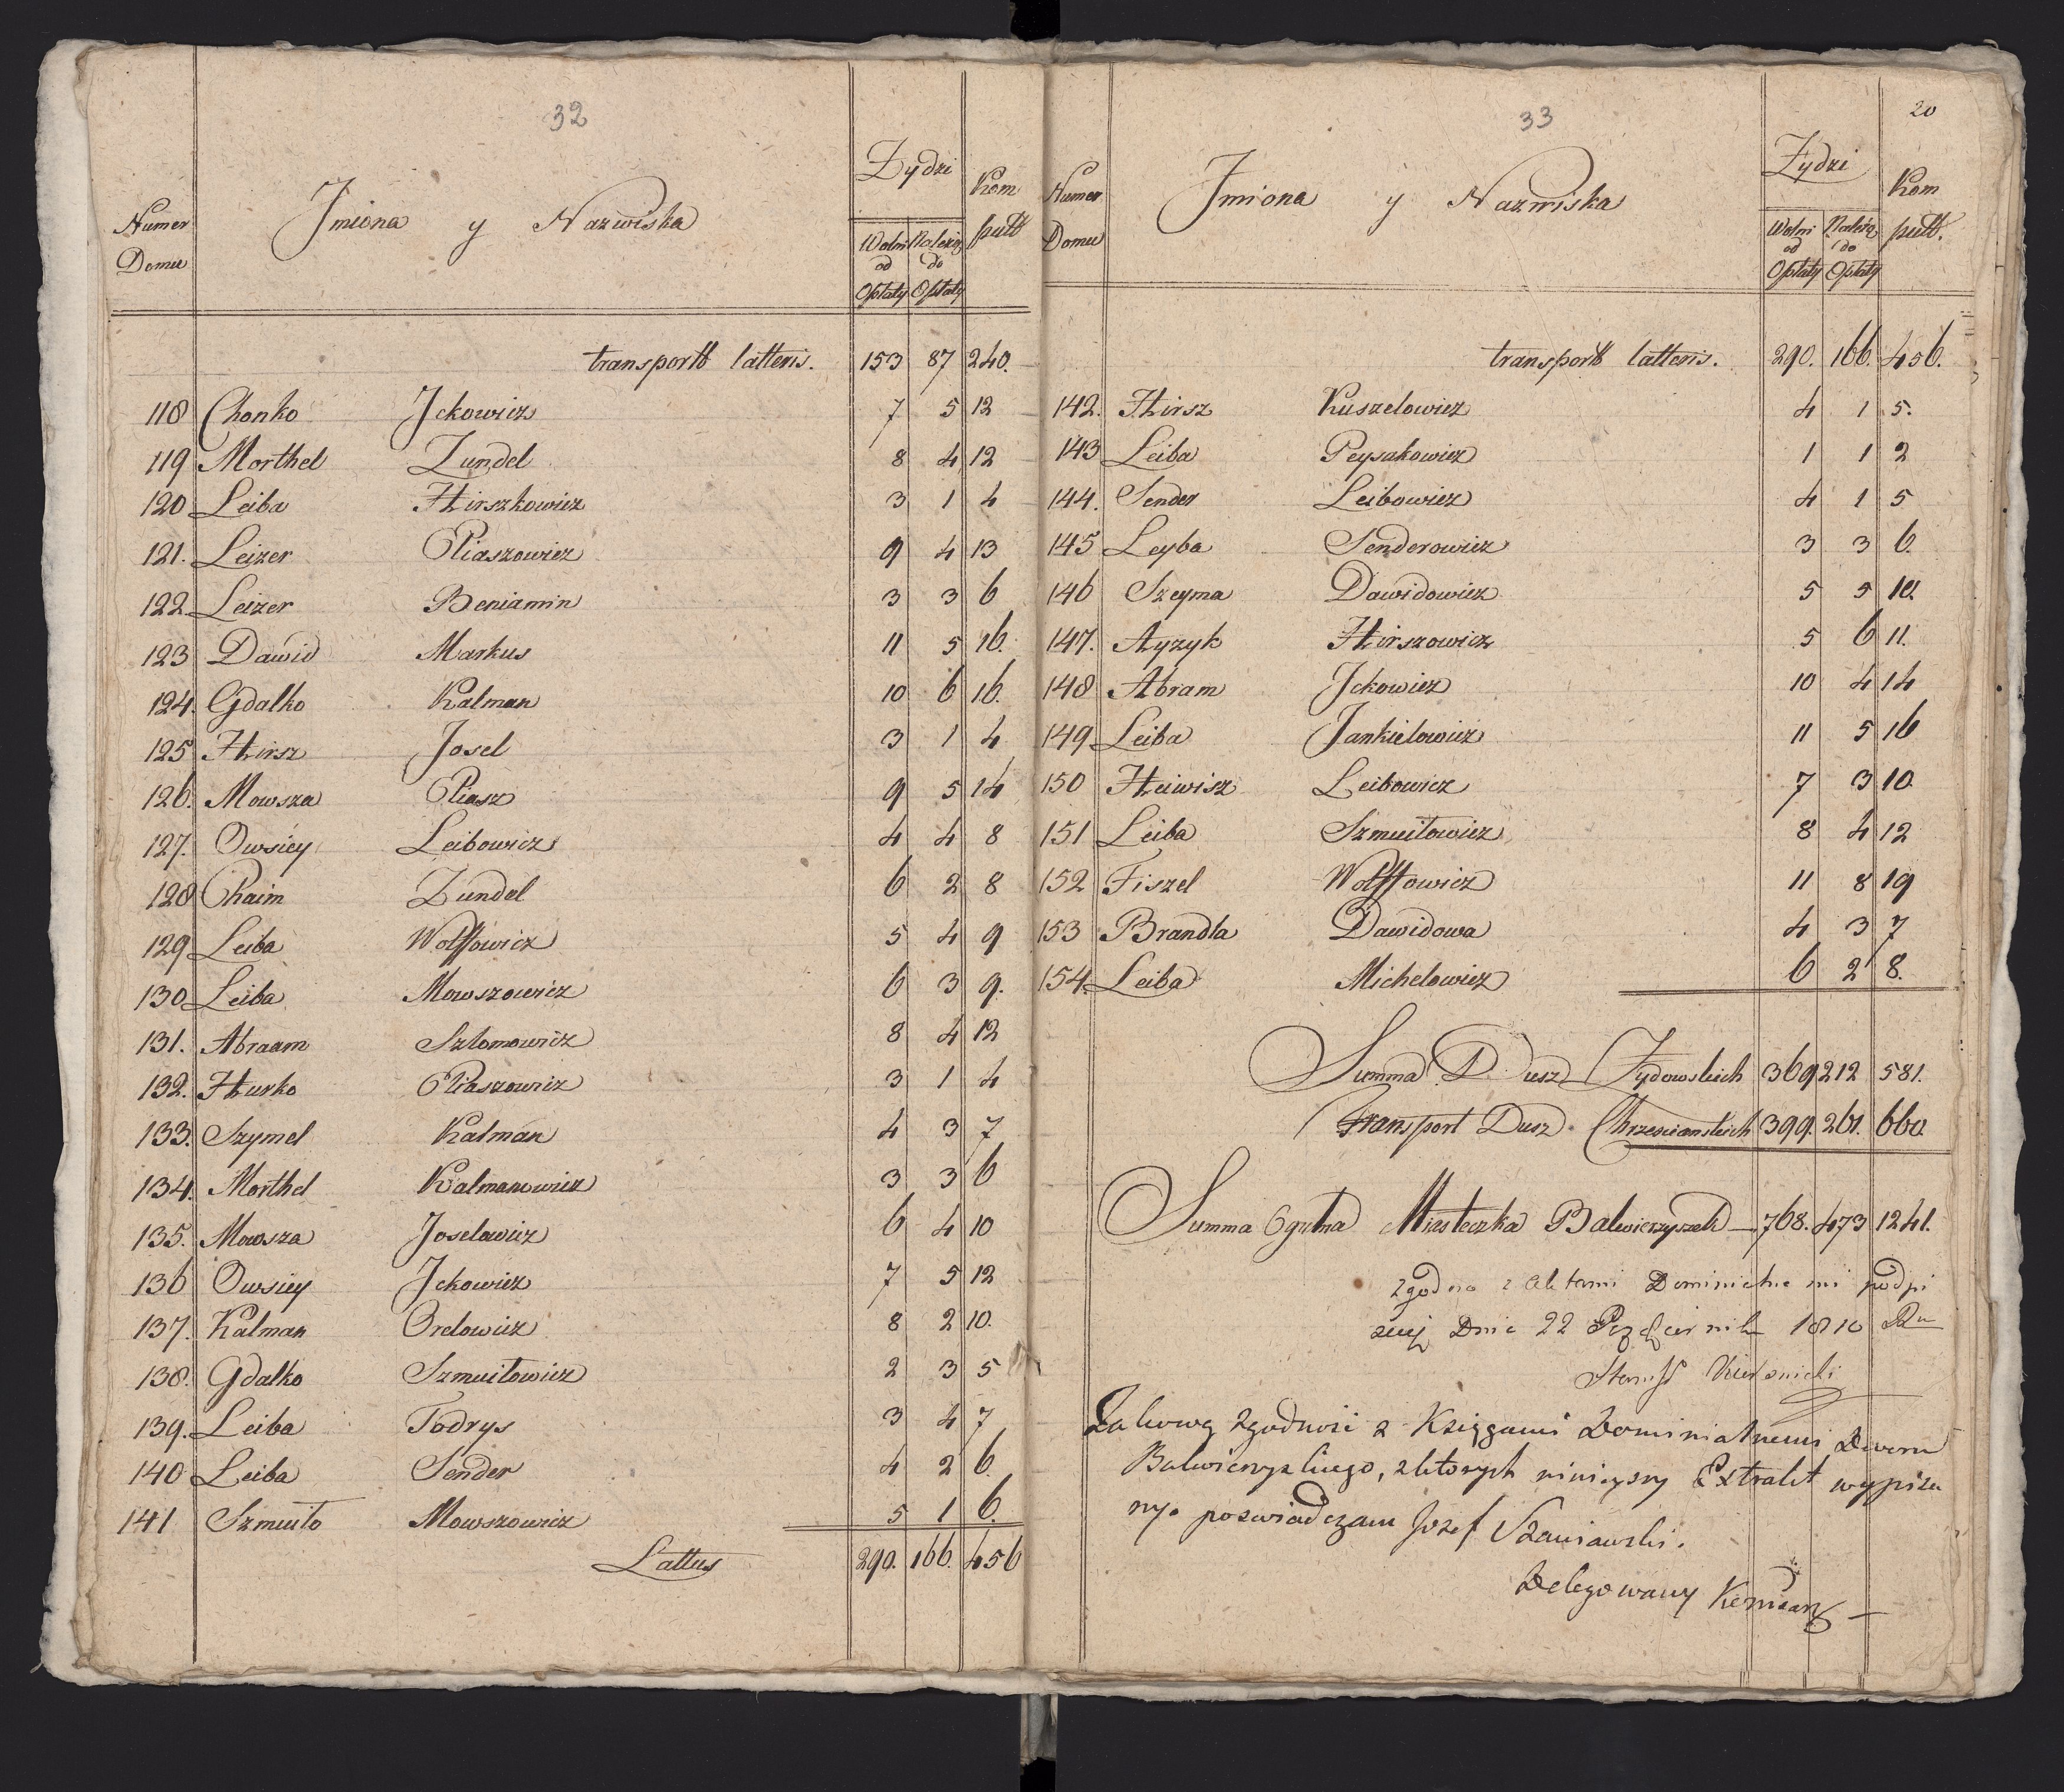 32
Numer Domu
Jmiona y Nazwiska
Żydzi
Wolni od Opłaty
Należą do Opłaty
Kom putt
transportt latteris. 153 87 240.
118 Chonko Jckowicz 7 5 12
119 Morthel Zundel 8 4 12
120 Leiba Hirszkowicz 3 1 4
121. Leizer Eliaszowicz 9 4 13
122 Leizer Beniamin 3 3 6
123 Dawid Markus 11 5 16.
124. Gdalko Kalman 10 6 16.
125 Hirsz Josel 3 1 4
126. Mowsza Eliasz 9 5 14
127. Owsiey Leibowicz 4 4 8
128 Chaim Zundel 6 2 8
129 Leiba Wolffowicz 5 4 9
130 Leiba Mowszowicz 6 3 9.
131. Abraam Szlomowicz 8 4 12
132. Hurko Eliaszowicz 3 1 4
133. Szymel Kalman 4 3 7
134. Morthel Kalmanowicz 3 3 6
135. Mowsza Joselowicz 6 4 10
136 Owsiey Jckowicz 7 5 12
137. Kalman Orelowicz 8 2 10.
138. Gdalko Szmuiłowicz 2 3 5
139. Leiba Todrys 3 4 7
140 Leiba Sender 4 2 6.
141 Szmuiło Mowszowicz 5 1 6.
Lattus 290. 166. 456
33
20
Numer Domu
Jmiona y Nazwiska
Żydzi
Wolni od Opłaty
Należą do Opłaty
Kom putt.
transportt latteris. 290. 166. 456.
142. Hirsz Kuszelowicz 4 1 5.
143 Leiba Peysakowicz 1 1 2
144. Sender Leibowicz 4 1 5
145 Leyba Senderowicz 3 3 6.
146 Szeyma Dawidowicz 5 5 10.
147. Ayzyk Hirszowicz 5 6 11.
148 Abram Jckowicz 10 4 14
149 Leiba Jankielowicz 11 5 16
150 Heiwisz Leibowicz 7 3 10.
151 Leiba Szmuiłowicz 8 4 12
152 Fiszel Wolffowicz 11 8 19
153 Brandla Dawidowa 4 3 7
154. Leiba Michelowicz 6 2 8.
Summa Dusz Żydowskich 369 212 581.
Transport Dusz Chrzescianskich 399. 261. 660.
Summa Ogulna Miasteczka Balwierzyszek — 768. 473 1241.
zgodno z Aktami Dominialne mi podpi
suię Dnia 22 Pazdziernik 1810 Ru
Za

kową zgodność z Księgami Dominialnemi Dworu
Balwierzyskiego, z których ninieyszy Extrakt wypisa
ny poswiadczam Jozef Szaniawski.
Delegowany